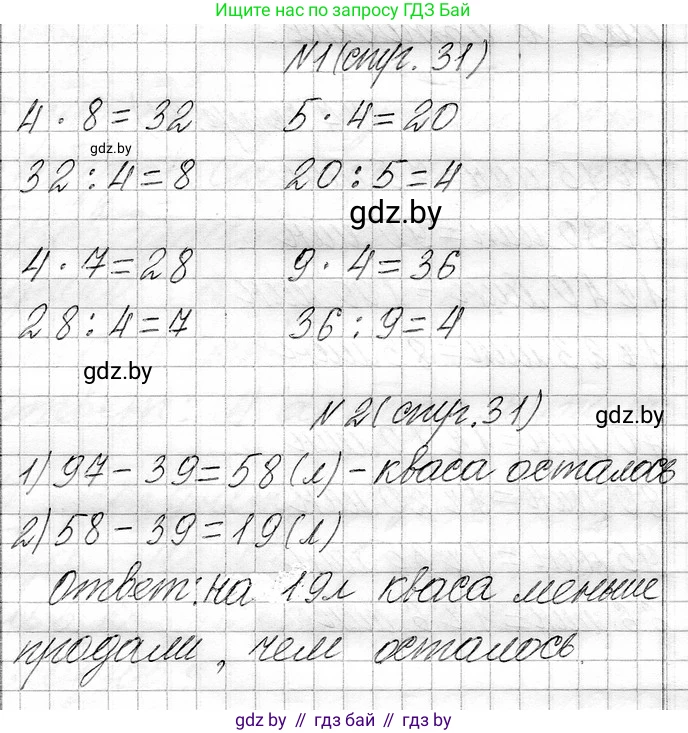 Ищите нас по запросу ГДЗ Бай
N1 (стр. 31)
4 · 8 = 32 5 · 4 = 20
gdz.by
32 : 4 = 8 20 : 5 = 4
gdz.by
4 · 7 = 28 9 · 4 = 36
28 : 4 = 7 36 : 9 = 4
gdz.by
N 2 (стр. 31) gdz.by
1) 97 - 39 = 58 (л) - кваса осталось
2) 58 - 39 = 19 (л)
Ответ: на 19 л кваса меньше
продали, чем осталось.
gdz.by // гдз бай // gdz.by